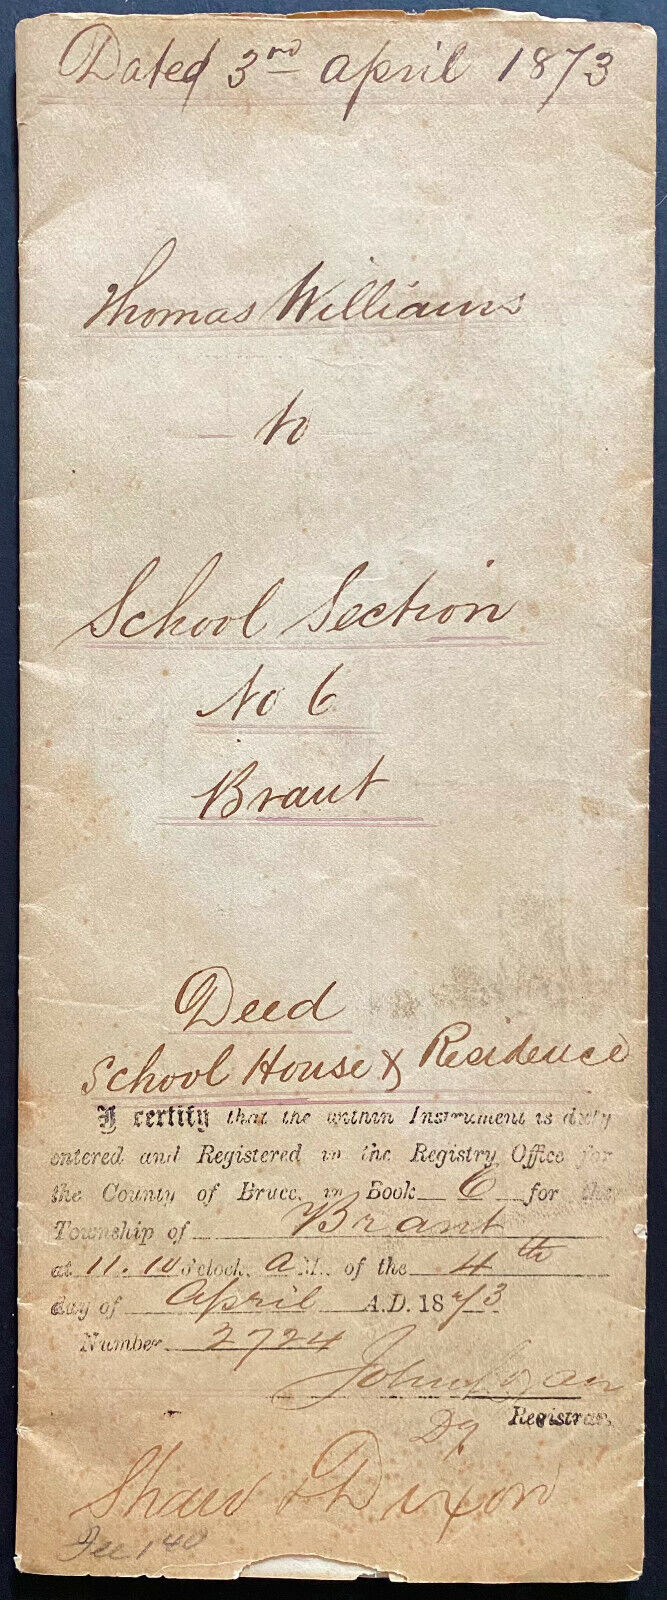 Dated 3rd April 1873
Thomas Williams
to
School Section
No 6
Brant
Deed
School House & Residence
I certify that the within Instrument is duly
entered and Registered in the Registry Office for
the County of Bruce, in Book 6 for the
Township of Brant
at 11.10 o'clock, A.M. of the 4th
day of April A.D. 1873
Number 2724
John
Dy Registrar.
Shaw & Dixon
Fee 140